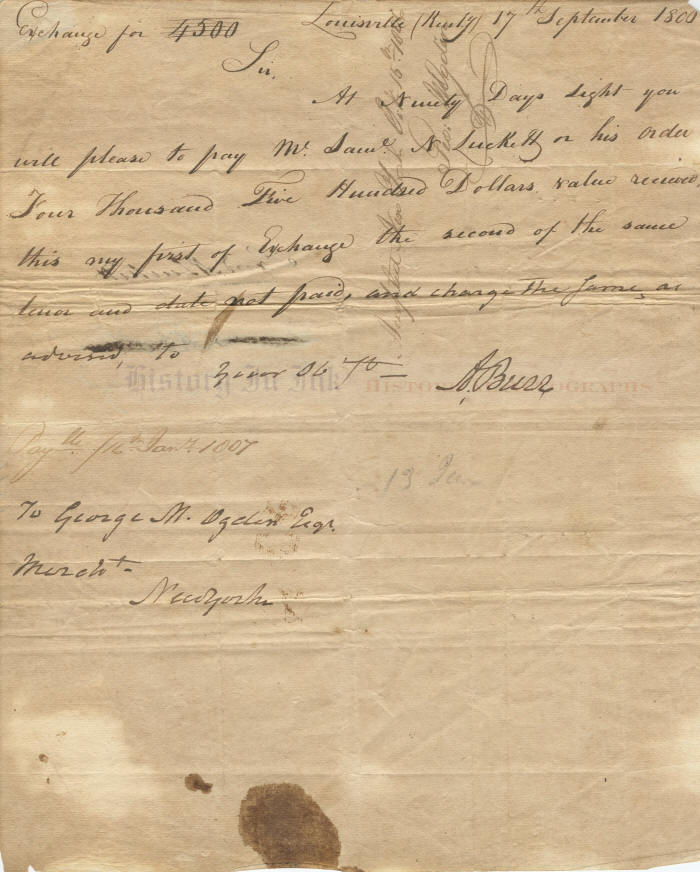 Exchange for 4500
Louisville (Kenty) 17th September 1806
Sir,
At Ninety Days sight you
will please to pay Mr. Saml. N. Luckett or his order
Four Thousand Five Hundred Dollars value received
this my first of Exchange the second of the same
tenor and date not paid, and charge the same, as
advised, to
Your Ob St
A. Burr
History In Ink HISTORICAL AUTOGRAPHS
Payble 16th Jany. 1807
13 Jan
To George M. Ogden Esqr.
Mercht.
New York